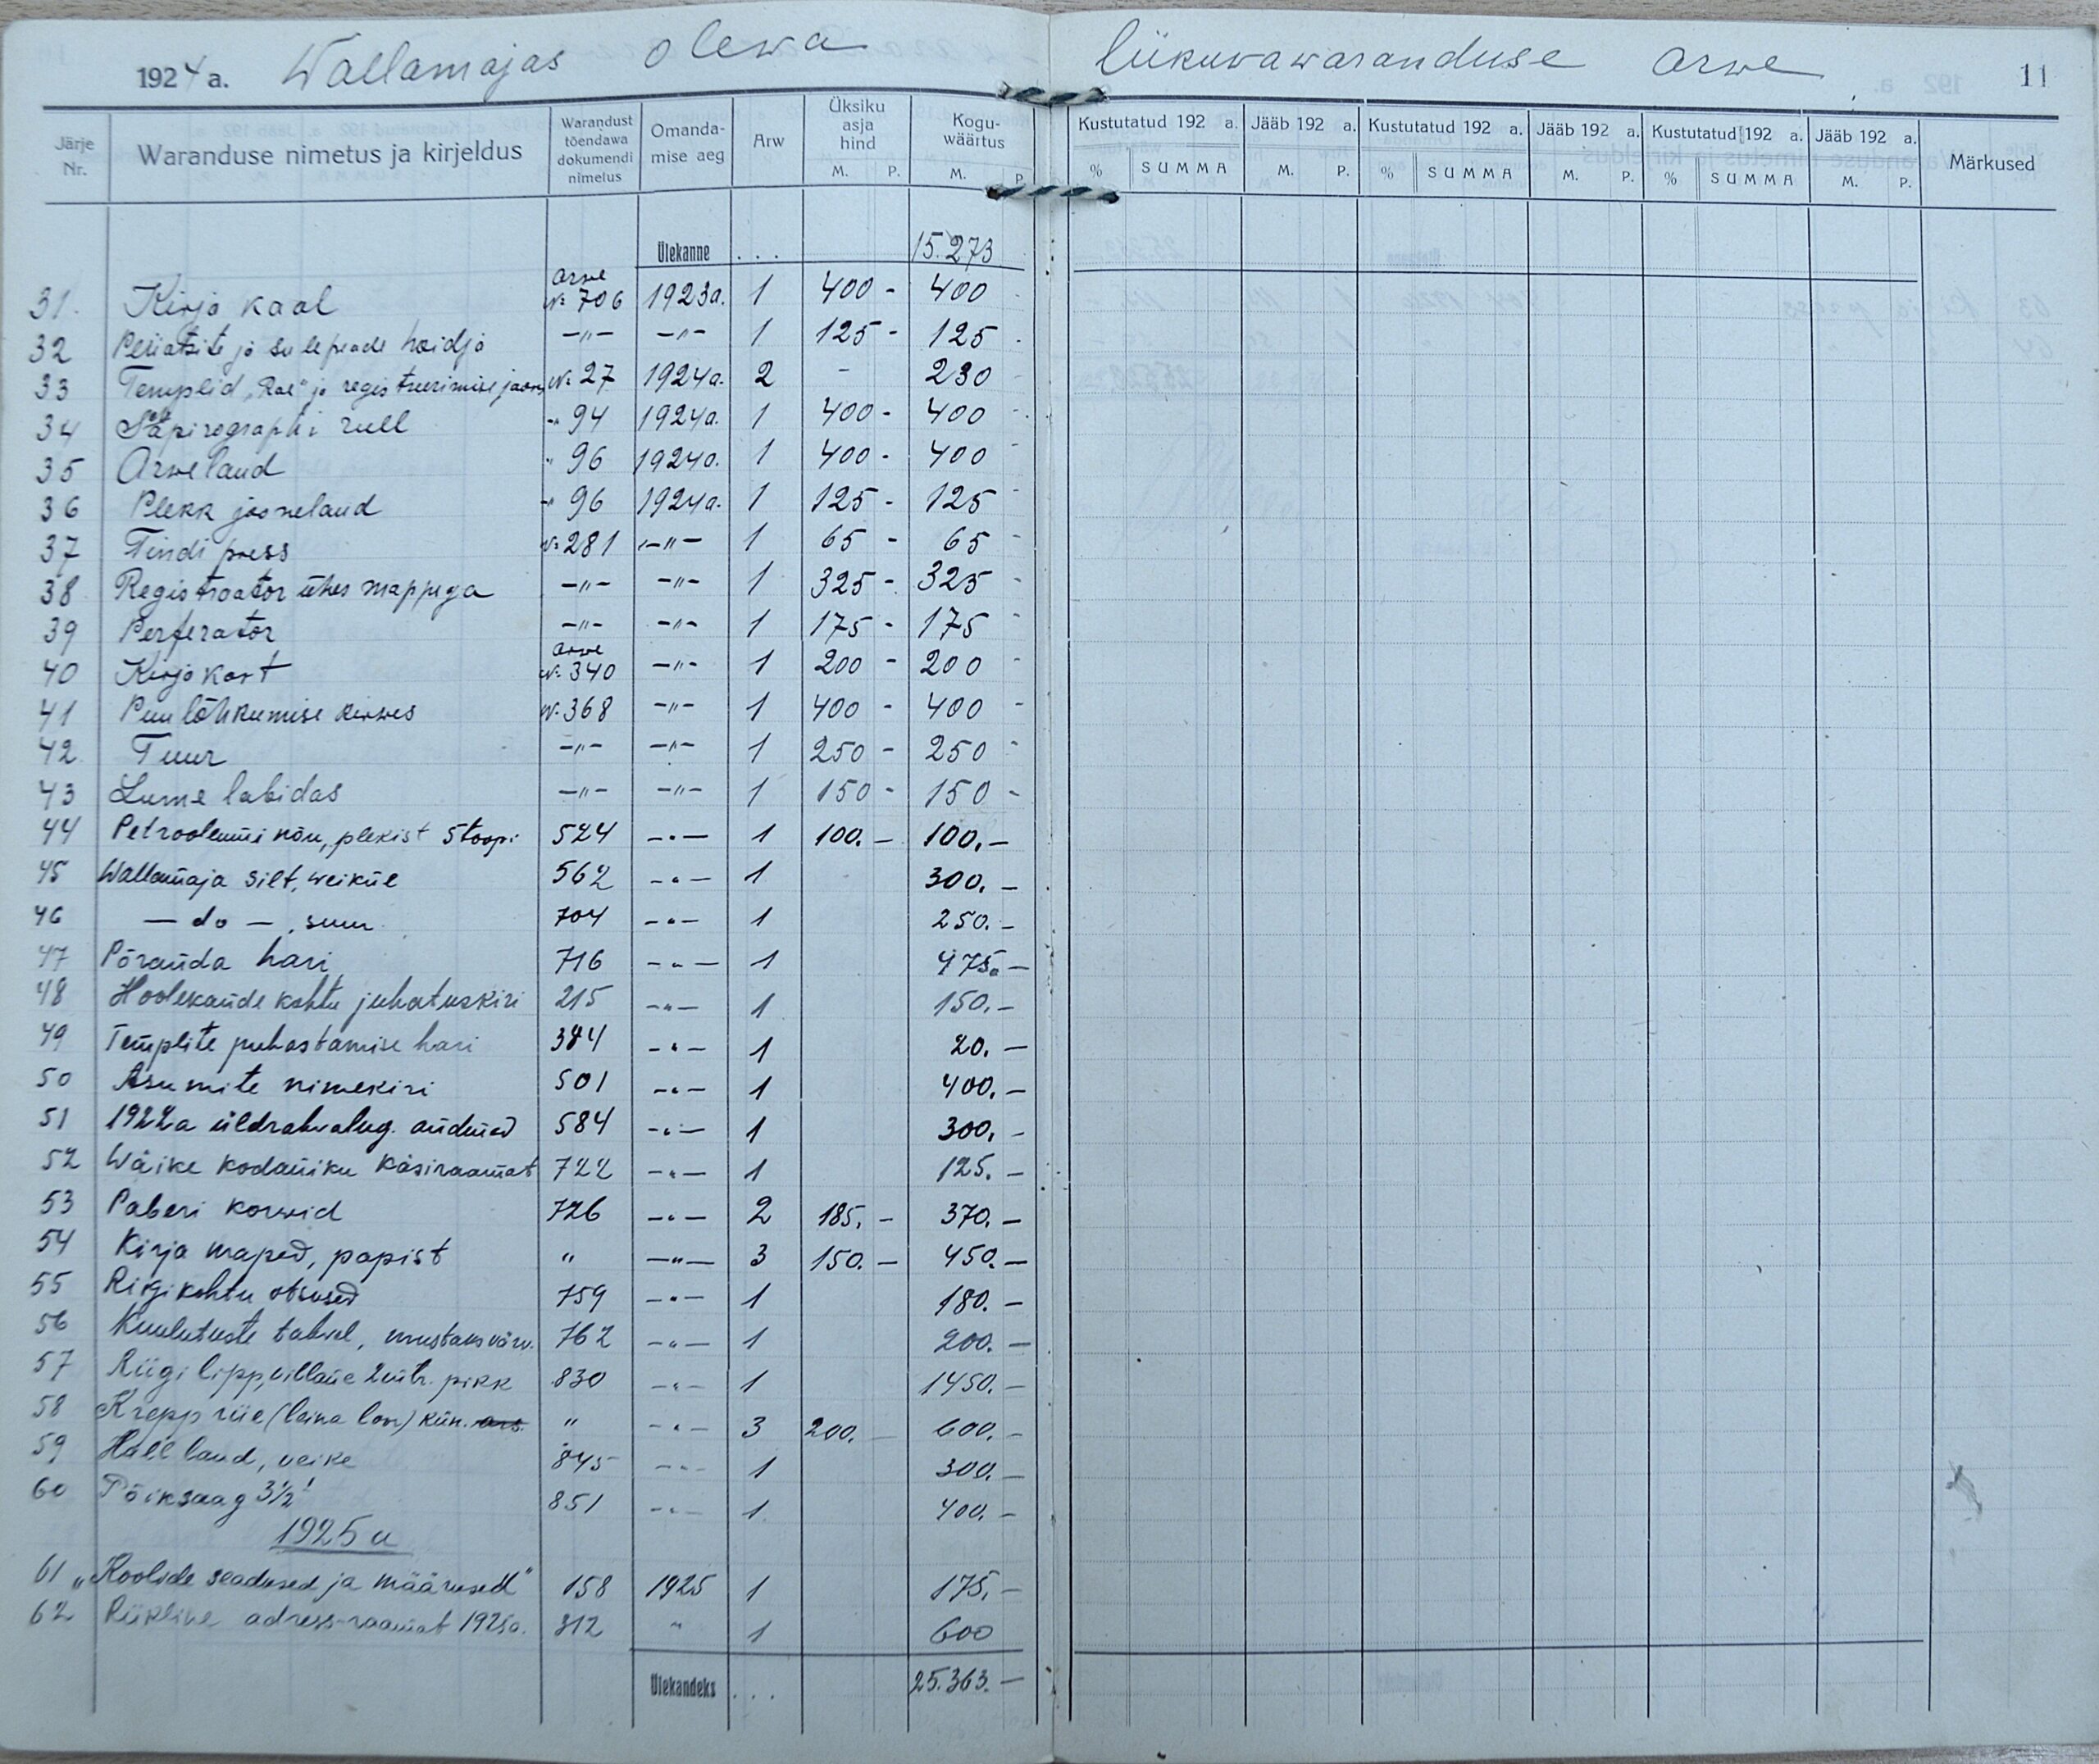 1924 a. Wallamajas olewa liikuwawaranduse arwe 11
Järje Nr. Waranduse nimetus ja kirjeldus Warandust tõendawa dokumendi nimetus Omandamise aeg Arw Üksiku asja hind M. P. Koguwäärtus M. P. Kustutatud 192 a. % SUMMA Jääb 192 a. M. P. Kustutatud 192 a. % SUMMA Jääb 192 a. M. P. Kustutatud 192 a. % SUMMA Jääb 192 a. M. P. Märkused
Ülekanne . . . 15.273
31. Kirja kaal arwe № 706 1923a. 1 400 - 400
32 Peiiatsite ja sulepeade hoidja -"- -"- 1 125 - 125
33 Templid „Rae" ja registreerimise jaoks № 27 1924a. 2 - 230 -
34 Šapirographi rull -" 94 1924a. 1 400 - 400 -
35 Arwelaud " 96 1924a. 1 400 - 400 -
36 Plekk joonelaud -" 96 1924a. 1 125 - 125 -
37 Tindi press № 281 -"- 1 65 - 65 -
38 Registraator ühes mappega -"- -"- 1 325 - 325 -
39 Perferator -"- -"- 1 175 - 175 -
40 Kirja kast arwe № 340 -"- 1 200 - 200 -
41 Puulõhkumise kirwes № 368 -"- 1 400 - 400 -
42 Tuur -"- -"- 1 250 - 250 -
43 Lume labidas -"- -"- 1 150 - 150 -
44 Petrooleumi nõu, plekist 5 toopi 524 -"- 1 100.- 100.-
45 Wallamaja silt, weikne 562 -"- 1 300.-
46 - do -, suur 704 -"- 1 250.-
47 Põranda hari 716 -"- 1 475.-
48 Hoolekande kohtu juhatuskiri 215 -"- 1 150.-
49 Templite puhastamise hari 384 -"- 1 20.-
50 Asumite nimekiri 501 -"- 1 400.-
51 1922a üldrahvalug. andmed 584 -"- 1 300.-
52 Wäike kodaniku käsiraamat 722 -"- 1 125.-
53 Paberi korwid 726 -"- 2 185.- 370.-
54 Kirja maped, papist " -"- 3 150.- 450.-
55 Riigikohtu otsused 759 -"- 1 180.-
56 Kuulutuste tahvel, mustaks värv. 762 -"- 1 200.-
57 Riigi lipp, villane 2 mtr. pikk 830 -"- 1 1450.-
58 Krepp riie (leina loor) küün. ars. " -"- 3 200.- 600.-
59 Hall laud, veike 845 -"- 1 300.-
60 Põiksaag 3½' 851 -"- 1 400.-
1925 a
61 „Koolide seadused ja määrused" 158 1925 1 175.-
62 Riikline adress-raamat 1925a. 312 " 1 600
Ülekandeks . . . 25.363.-